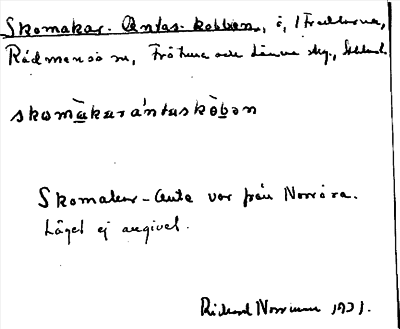 Skomakar-Antas-kobben, ö, i Fradtarna,
Rådmansö sn, Frötuna och Länna skg., Stockh.
skomàkarántaskòbən
Skomakar-Anta var från Norröra.
Läget ej angivet.
Rickard 1931.